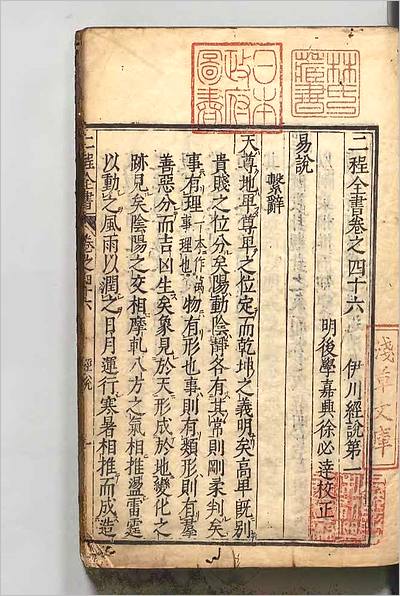 二程全書卷之四十六　伊川經說第一
明後學嘉興徐必達校正
易說
繫辭
天尊地卑尊卑之位定而乾坤之義明矣高卑既別
貴賤之位分矣陽動陰靜各有其常則剛柔判矣
事有理一本作萬事理也物有形也事則有類形則有羣
善惡分而吉凶生矣象見於天形成於地變化之
跡見矣陰陽之交相摩軋八方之氣相推盪雷霆
以動之風雨以潤之日月運行寒暑相推而成造
二程全書　卷之四十六　經說　一
林氏藏書
日本政府圖書
淺草文庫